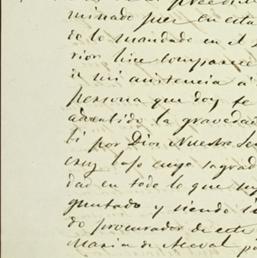 minado pues en esta
do lo mandado en el
rior hice comparec
a mi asistencia á
persona que doy fe
advertido la gravedad
bi por Dios Nuestro Se
cruz bajo cuya sagrad
dad en todo lo que
guntado y siendo
do procurador de este
Maria de